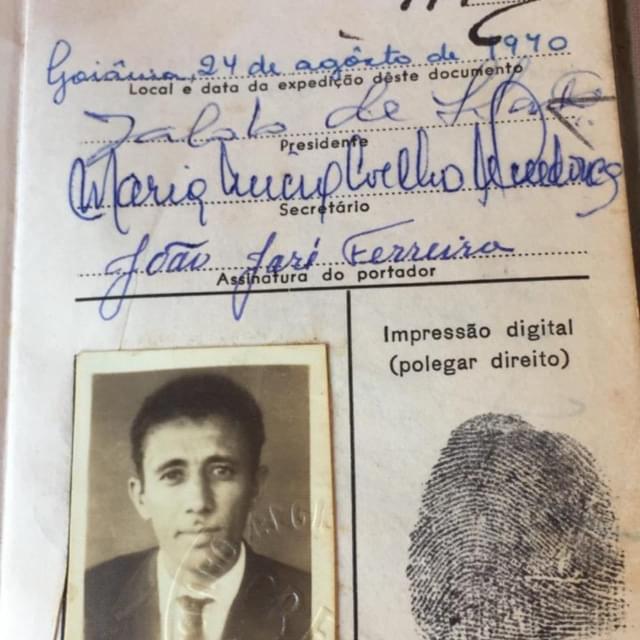 Goiânia, 24 de agôsto de 1970
Local e data da expedição dêste documento
de
Presidente
Maria Lucia Coelho Mendonça
Secretário
João José Ferreira
Assinatura do portador
Impressão digital
(polegar direito)